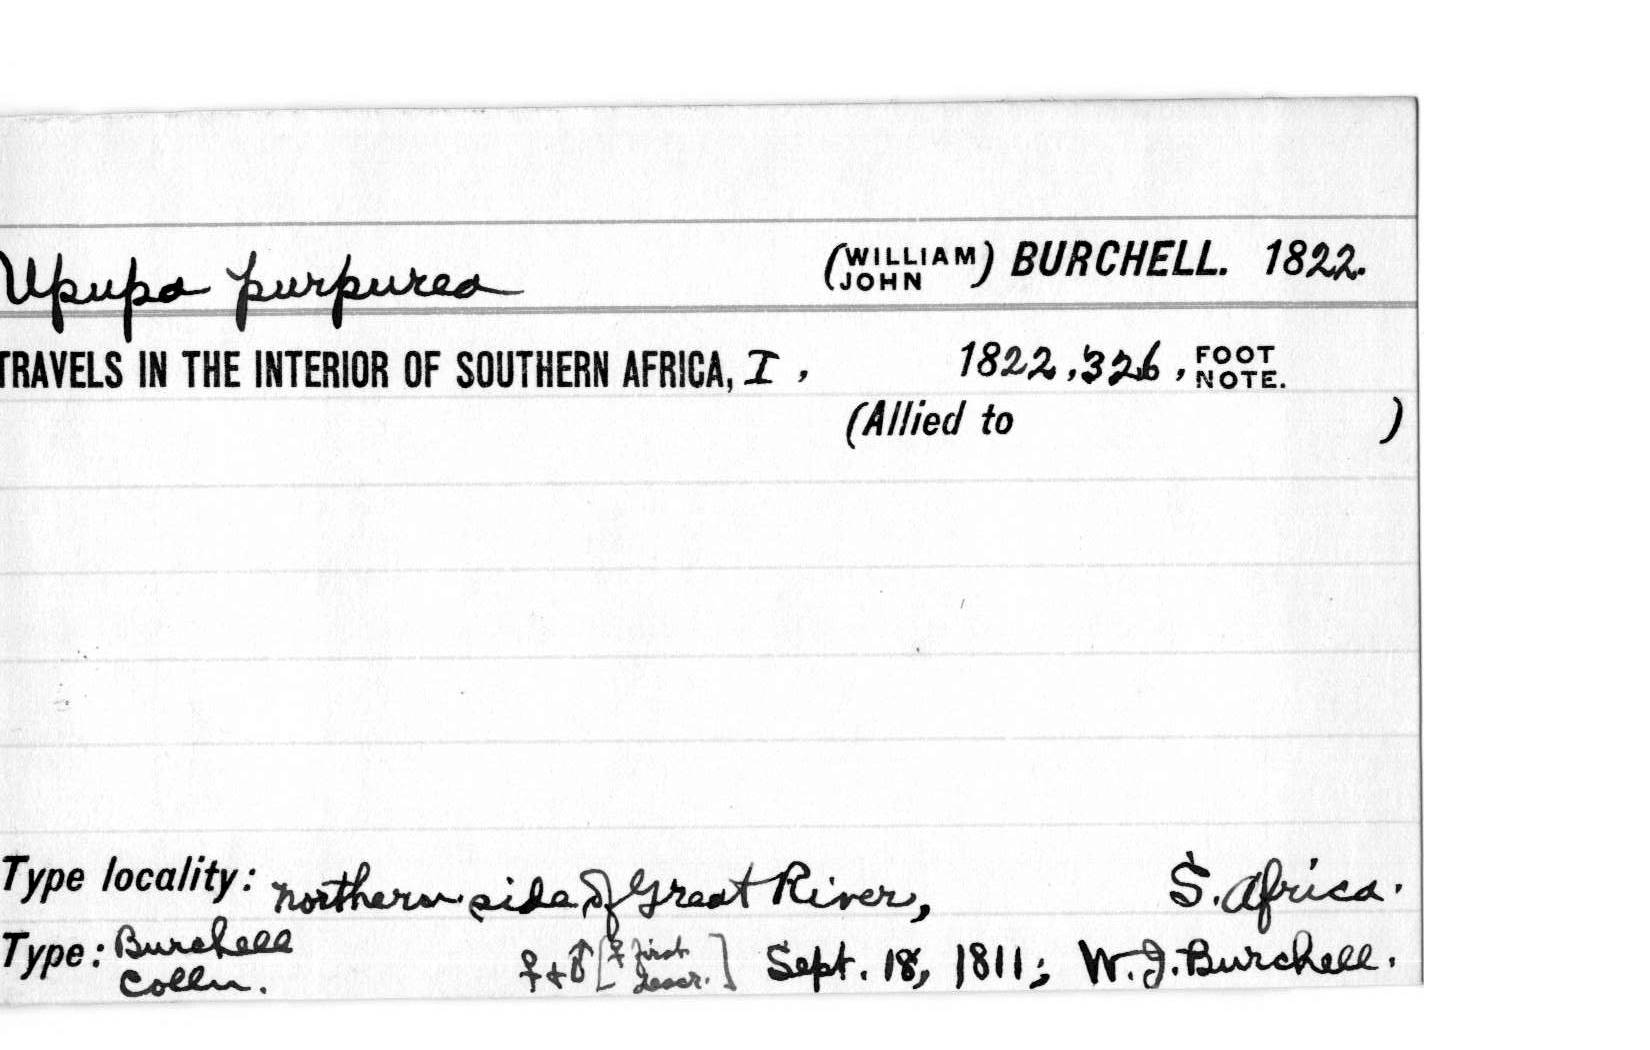 Upupa purpurea (WILLIAM JOHN) BURCHELL. 1822.
TRAVELS IN THE INTERIOR OF SOUTHERN AFRICA, I, 1822, 326, FOOT NOTE.
(Allied to )
Type locality: northern side of Great River, S. Africa.
Type: Burchell Colln. ♀ + ♂ [♀ first descr.] Sept. 18, 1811; W. J. Burchell.